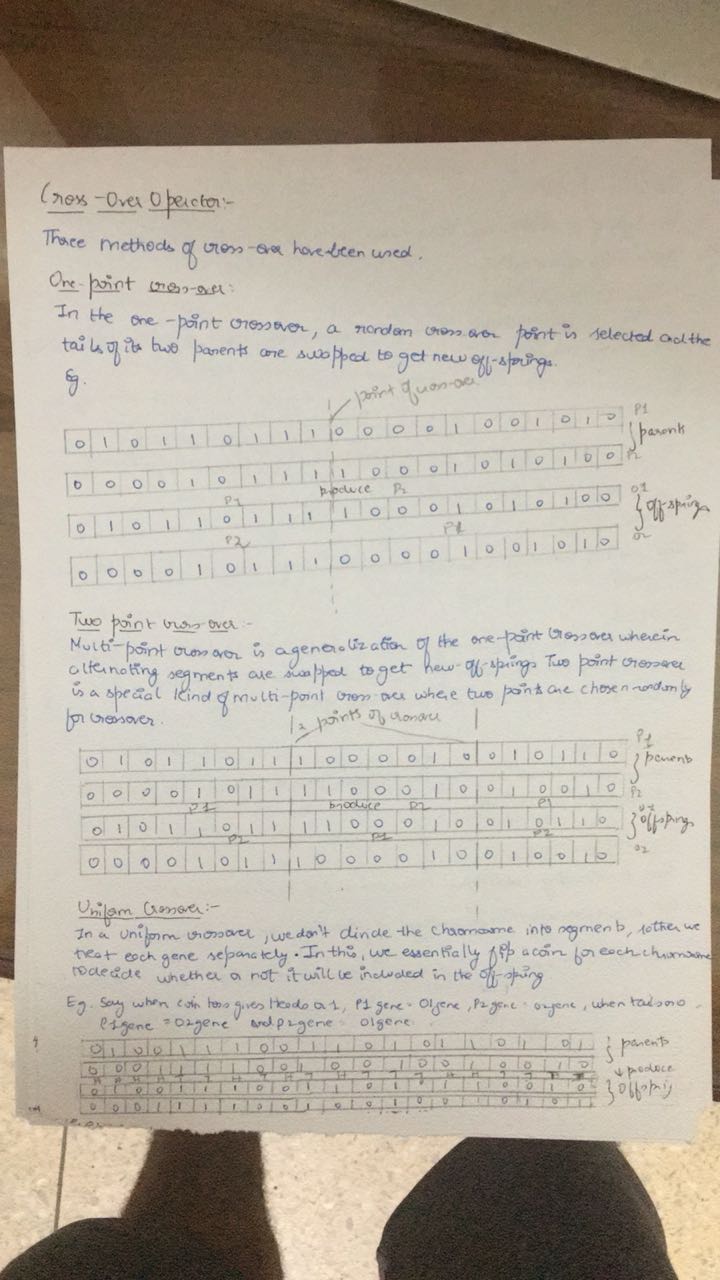 Cross-Over Operator:-
Three methods of cross-over have been used.
One-point cross-over:
In the one-point crossover, a random crossover point is selected and the
tails of its two parents are swapped to get new off-springs.
Eg.
point of cross-over
0 1 0 1 1 0 1 1 1 0 0 0 0 1 0 0 1 0 1 0 P1
parents
0 0 0 0 1 0 1 1 1 1 0 0 0 1 0 1 0 1 0 0 P2
P1 produce P2
0 1 0 1 1 0 1 1 1 1 0 0 0 1 0 1 0 1 0 0 O1
off-springs
P2 P1
0 0 0 0 1 0 1 1 1 0 0 0 0 1 0 0 1 0 1 0 O2
Two point cross-over:-
Multi-point crossover is a generalization of the one-point crossover wherein
alternating segments are swapped to get new-off-springs. Two point crossover
is a special kind of multi-point cross-over where two points are chosen randomly
for crossover.
2 points of crossover
0 1 0 1 1 0 1 1 1 0 0 0 0 1 0 0 1 0 1 1 0 P1
parents
0 0 0 0 1 0 1 1 1 1 0 0 0 1 0 0 1 0 0 1 0 P2
P1 produce P2 P1
0 1 0 1 1 0 1 1 1 1 0 0 0 1 0 0 1 0 1 1 0
offsprings
P2 P1 P2
0 0 0 0 1 0 1 1 1 0 0 0 0 1 0 0 1 0 0 1 0 O2
Uniform Crossover:-
In a uniform crossover, we don't divide the chromosome into segments, rather we
treat each gene separately. In this, we essentially flip a coin for each chromosome
to decide whether or not it will be included in the off-spring
Eg. Say when coin toss gives Heads or 1, P1 gene = O1gene, P2 gene = O2gene, when tails or 0
P1gene = O2gene and P2gene = O1gene.
parents
produce
offspring